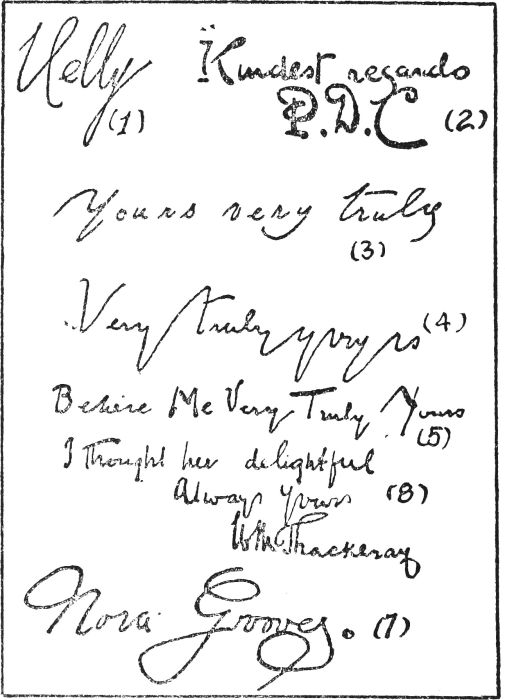 Nelly
(1)
Kindest regards
P.D.C (2)
Yours very truly
(3)
Very truly yours (4)
Believe Me Very Truly Yours
(5)
I thought her delightful
Always yours (8)
WM Thackeray
Nora Groves. (7)